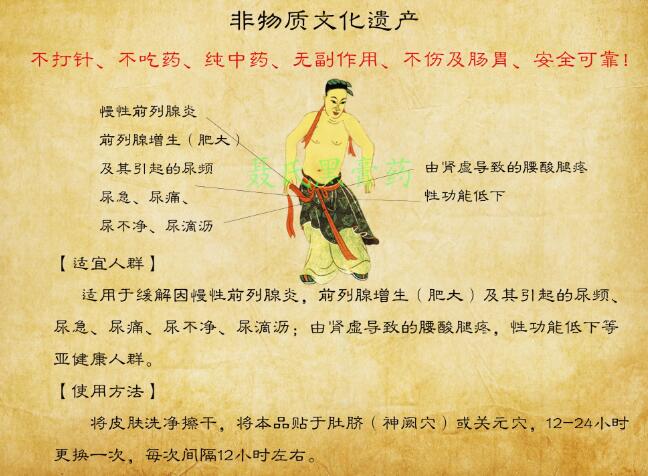 非物质文化遗产
不打针、不吃药、纯中药、无副作用、不伤及肠胃、安全可靠！
慢性前列腺炎
前列腺增生（肥大）
及其引起的尿频
尿急、尿痛、
尿不净、尿滴沥
由肾虚导致的腰酸腿疼
性功能低下
聂氏黑膏药
【适宜人群】
适用于缓解因慢性前列腺炎，前列腺增生（肥大）及其引起的尿频、
尿急、尿痛、尿不净、尿滴沥；由肾虚导致的腰酸腿疼，性功能低下等
亚健康人群。
【使用方法】
将皮肤洗净擦干，将本品贴于肚脐（神阙穴）或关元穴，12-24小时
更换一次，每次间隔12小时左右。